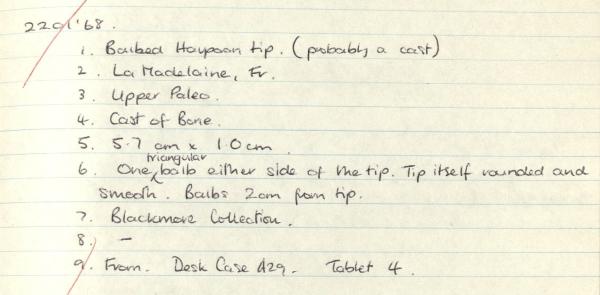 2201'68.
1. Barbed Harpoon tip. (probably a cast)
2. La Madelaine, Fr.
3. Upper Paleo.
4. Cast of Bone.
5. 5.7 cm x 1.0cm.
6. One triangular barb either side of the tip. Tip itself rounded and
smooth. Barbs 2cm from tip.
7. Blackmore Collection.
8. –
9. From. Desk Case A29. Tablet 4.